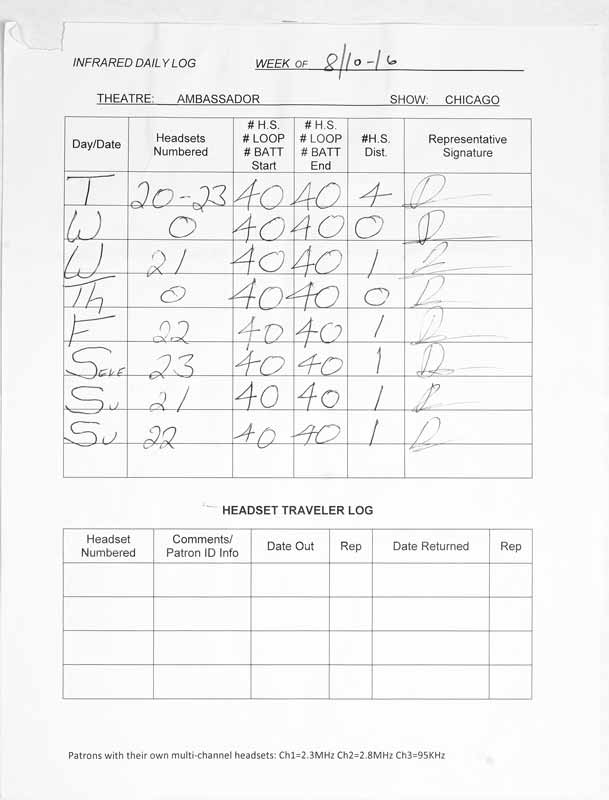 INFRARED DAILY LOG WEEK OF 8/10-16
THEATRE: AMBASSADOR SHOW: CHICAGO
Day/Date Headsets Numbered # H.S. # LOOP # BATT Start # H.S. # LOOP # BATT End #H.S. Dist. Representative Signature
T 20-23 40 40 4
W 0 40 40 0
W 21 40 40 1
Th 0 40 40 0
F 22 40 40 1
S EVE 23 40 40 1
Su 21 40 40 1
Su 22 40 40 1
HEADSET TRAVELER LOG
Headset Numbered Comments/ Patron ID Info Date Out Rep Date Returned Rep
Patrons with their own multi-channel headsets: Ch1=2.3MHz Ch2=2.8MHz Ch3=95KHz